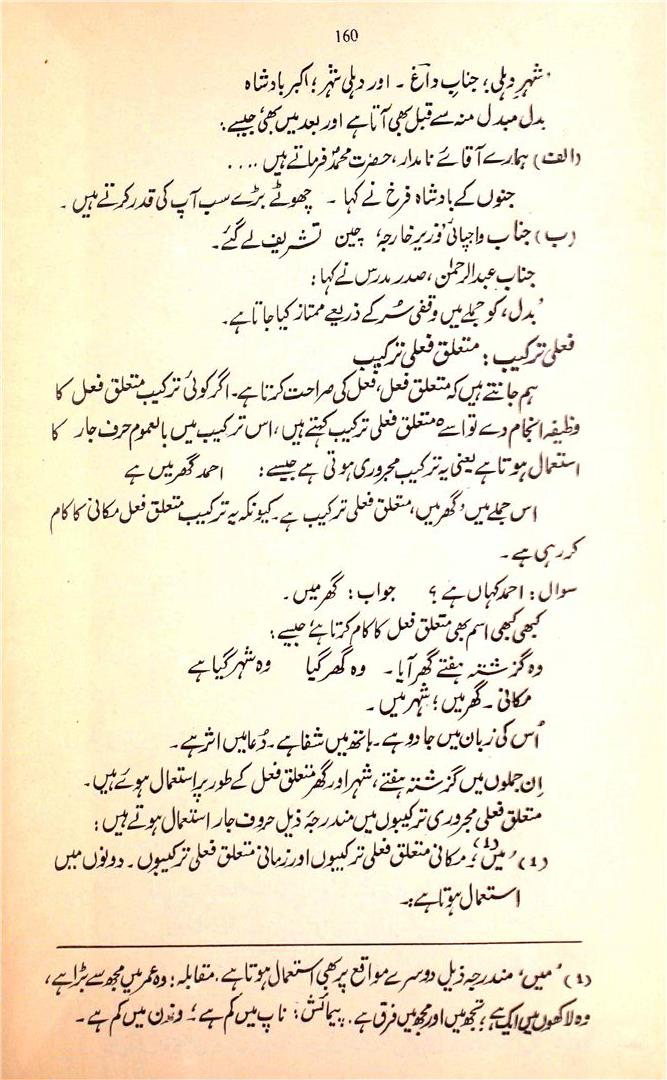 160
'شہرِ دہلی؛ جنابِ داغ ۔ اور دہلی شہر؛ اکبر بادشاہ
بدل مبدل منہ سے قبل بھی آتا ہے اور بعد میں بھی، جیسے:
(الف) ہمارے آقائے نامدار، حضرت محمدؐ فرماتے ہیں ....
جنوں کے بادشاہ فرخ نے کہا ۔ چھوٹے بڑے سب آپ کی قدر کرتے ہیں ۔
(ب) جناب واجپائی 'وزیر خارجہ' چین تشریف لے گئے۔
جناب عبدالرحمٰن، صدر مدرس نے کہا:
'بدل، کو جملے میں وقفی سُر کے ذریعے ممتاز کیا جاتا ہے۔
فعلی ترکیب: متعلق فعلی ترکیب
ہم جانتے ہیں کہ متعلق فعل، فعل کی صراحت کرتا ہے۔ اگر کوئی ترکیب متعلق فعل کا
وظیفہ انجام دے تو اسے متعلق فعلی ترکیب کہتے ہیں، اس ترکیب میں بالعموم حرف جار کا
استعمال ہوتا ہے یعنی یہ ترکیب مجروری ہوتی ہے جیسے: احمد گھر میں ہے
اس جملے میں 'گھر میں، متعلق فعلی ترکیب ہے۔ کیونکہ یہ ترکیب متعلق فعل مکانی کا کام
کر رہی ہے ۔
سوال: احمد کہاں ہے ؟ جواب: گھر میں ۔
کبھی کبھی اسم بھی متعلق فعل کا کام کرتا ہے، جیسے:
وہ گزشتہ ہفتے گھر آیا ۔ وہ گھر گیا وہ شہر گیا ہے
مکانی ۔ گھر میں؛ شہر میں ۔
اُس کی زبان میں جادو ہے۔ ہاتھ میں شفا ہے۔ دُعا میں اثر ہے۔
اِن جملوں میں گزشتہ ہفتے، شہر اور گھر متعلق فعل کے طور پر استعمال ہوئے ہیں۔
متعلق فعلی مجروری ترکیبوں میں مندرجۂ ذیل حروف جار استعمال ہوتے ہیں:
(۱) 'میں'(۱): مکانی متعلق فعلی ترکیبوں اور زمانی متعلق فعلی ترکیبوں ۔ دونوں میں
استعمال ہوتا ہے:۔
(۱) 'میں' مندرجہ ذیل دوسرے مواقع پر بھی استعمال ہوتا ہے. مقابلہ: وہ عمر میں مجھ سے بڑا ہے،
وہ لاکھوں میں ایک ہے؛ تجھ میں اور مجھ میں فرق ہے. پیمائش: ناپ میں کم ہے؛ وزن میں کم ہے ۔